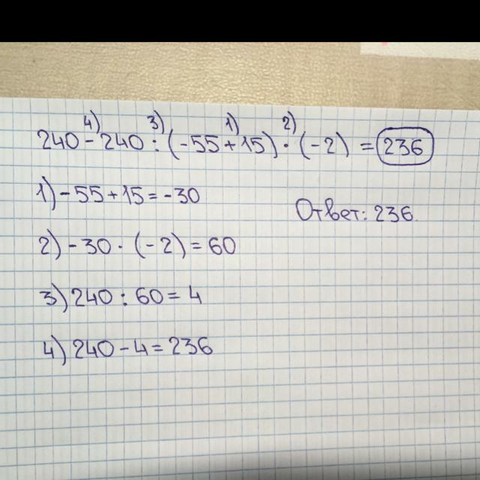 4) 3) 1) 2)
240 - 240 : (-55 + 15) · (-2) = 236
1) -55 + 15 = -30
Ответ: 236.
2) -30 · (-2) = 60
3) 240 : 60 = 4
4) 240 - 4 = 236